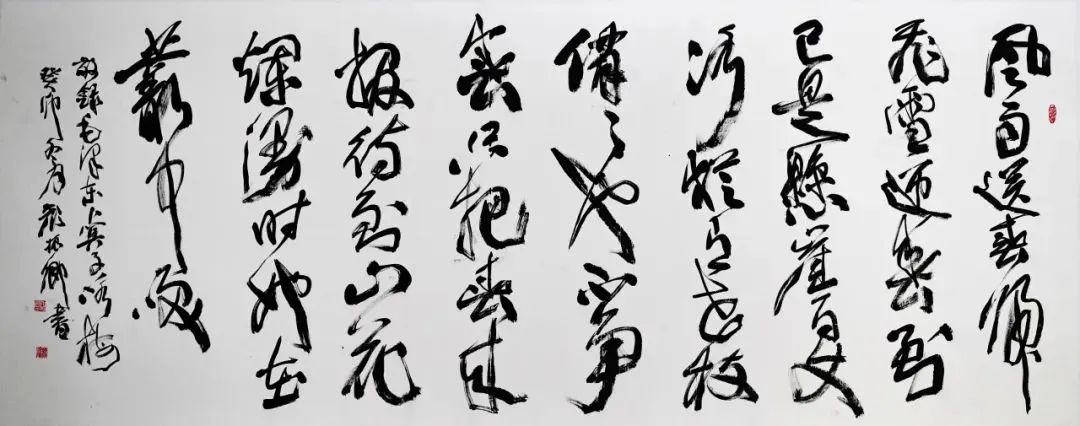 风雨送春歸
飛雪迎春到
已是懸崖百丈
冰猶有花枝
俏〻也不争
春只把春来
报待到山花
爛漫时她在
叢中笑
敬錄毛泽东卜算子咏梅
癸卯冬月振卿書